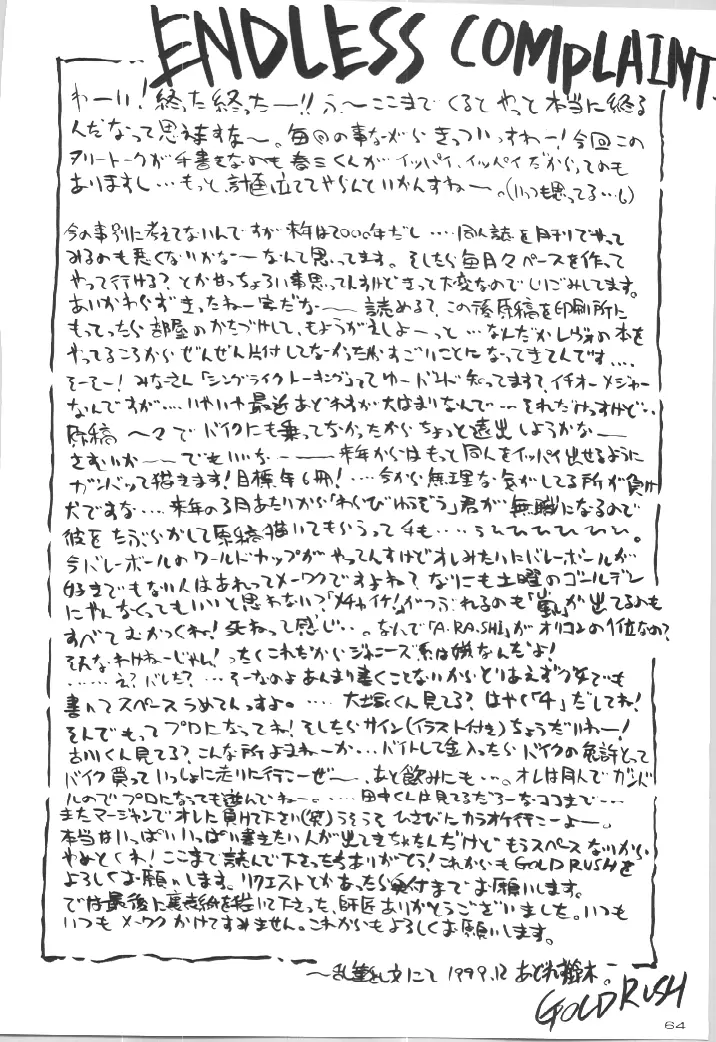 ENDLESS COMPLAINT
わーい!終った終ったー!!うーここまでくるとやっと本当に終る
んだなって思えますなー。毎回の事ながらきっついっすわー!今回この
フリートークが手書きなのも春三くんがイッパイ、イッパイだからってのも
ありますし…もっと計画立ててやらんといかんすねー。(いつも思ってる…)
今の事別に考えてないんですが来年は2000年だし‥‥同人誌を月刊でやって
みるのも悪くないかなーなんて思ってます。そしたら毎月々ペースを作って
やって行ける?とか甘っちょろい事思ってんすけどきって大変なのでしいごみしてます。
あいかわらずきったねー字だなー 読める?この後原稿を印刷所に
もってったら部屋のかたづけして、もようがえしよーっと…なんだかしヴォの本を
やってるころからぜんぜん片付してなかったからすごいことになってきてんです‥‥
そーそー!みなさん「シングライクトーキング」ってゆーバンド知ってます?イチオーメジャー
なんですが‥‥いやいや最近あどれすが大はまりなんで…それだけっすけど‥
原稿 でバイクにも乗ってなかったからちょっと遠出しようかなー
さむいかーでもいいなー 来年からはもっと同人をイッパイ出せるように
ガンバッて描きます!目標年6冊!‥‥今から無理な気がしてる所が負け
犬ですな‥‥来年の3月あたりから「わらびゆうぞう」君が無職になるので
彼をたぶらかして原稿描いてもらうって手も…うひひひひひひ。
今バレーボールのワールドカップがやってんすけどオレみたいにバレーボールが
好きでもない人はあれってメーワクですよね?なにも土曜のゴールデン
にやんなくってもいいと思わない?「メチャイケ!」がつぶれるのも「嵐」が出てるのも
すべてむかつくね!死ねって感じ‥。なんで「A.RA.SHI」がオリコンの1位なの?
そんなわけねーじゃん!ったくこれだからジャニーズ系は嫌なんだよ!
……え?バレた?…そーなのよあんまり書くことないからとりあえず字でも
書いてスペースうめてんっすよ。‥‥大塚くん見てる?はやく「4」だしてね!
そんでもってプロになってね!そしたらサイン(イラスト付き)ちょうだいねー!
古川くん見てる?こんな所よまねーか…バイトして金入ったらバイクの免許とって
バイク買っていっしょに走りに行こーぜー、あと飲みにも…。オレは同人でガンバ
ルのでプロになっても遊んでねー。‥‥田中くんは見てるだろーなココまで…
またマージャンでオレに負けて下さい(笑)うそうそひさびにカラオケ行こーよー。
本当はいっぱいいっぱい書きたい人が出てきちゃたんだけどもうスペースないから
やめとくね!ここまで読んで下さったらありがとう!これからもGOLD RUSHを
よろしくお願いします。リクエストとかあったら受付までお願いします。
では最後に裏表紙を描いて下さった、師匠ありがとうございました。いつも
いつもメーワクかけてすみません。これからもよろしくお願いします。
〜乱筆乱文にて 1999.12 あどれす鈴木。
GOLD RUSH
64